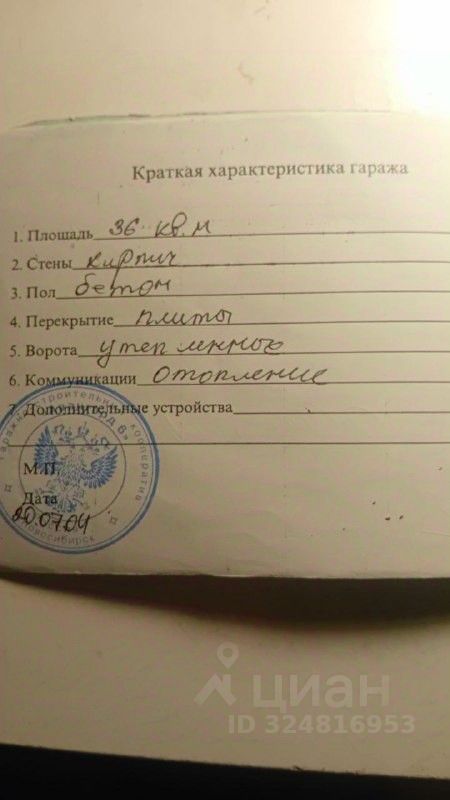 Краткая характеристика гаража
1. Площадь 36 кв.м
2. Стены кирпич
3. Пол бетон
4. Перекрытие плиты
5. Ворота утепленные
6. Коммуникации отопление
7. Дополнительные устройства
Гаражно-строительный кооператив
М.П.
Дата
20.07.04
Новосибирск
циан
ID 324816953